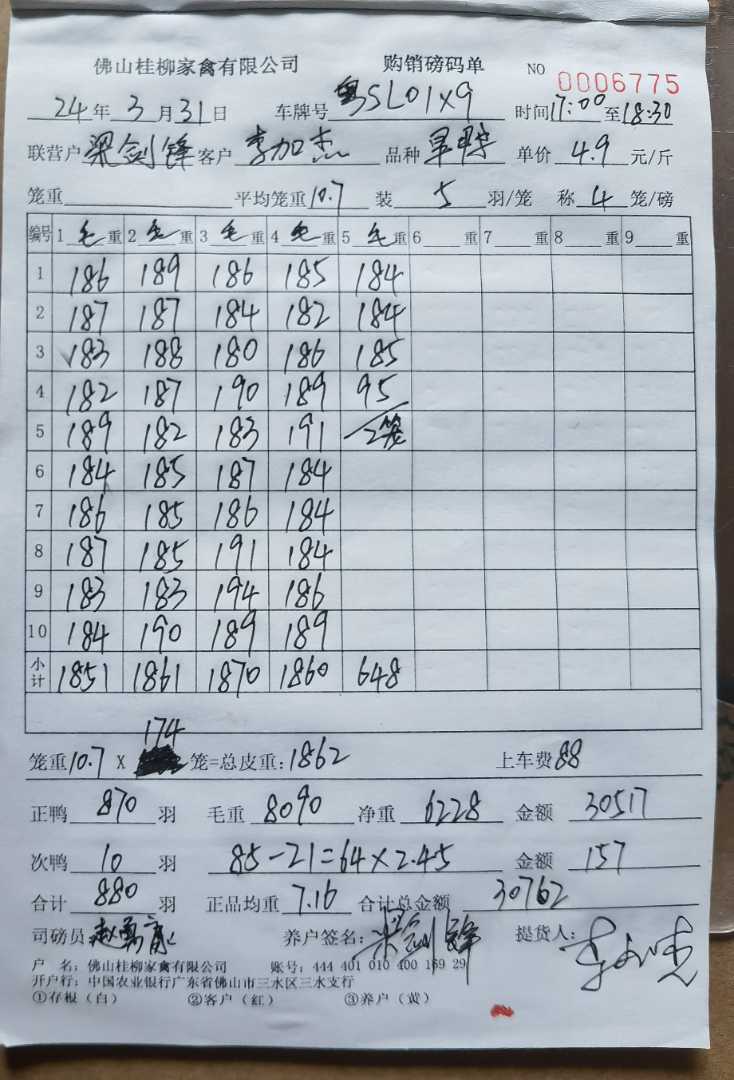 佛山桂柳家禽有限公司 购销磅码单 NO 0006775
24年3月31日 车牌号 粤SL01X9 时间17:00至18:30
联营户 梁剑锋 客户 李加杰 品种 单价 4.9 元/斤
笼重 平均笼重10.7 装 5 羽/笼 称 4 笼/磅
编号 1 毛 重 2 毛 重 3 毛 重 4 毛 重 5 毛 重 6 重 7 重 8 重 9 重
1 186 189 186 185 184
2 187 187 184 182 184
3 183 188 180 186 185
4 182 187 190 189 95
5 189 182 183 191 2笼
6 184 185 187 184
7 186 185 186 184
8 187 185 191 184
9 183 183 194 186
10 184 190 189 189
小计 1851 1861 1870 1860 648
笼重10.7 X 174 笼=总皮重:1862 上车费88
正鸭 870 羽 毛重 8090 净重 6228 金额 30517
次鸭 10 羽 85-21=64×2.45 金额 157
合计 880 羽 正品均重 7.16 合计总金额 30762
司磅员 养户签名: 梁剑锋 提货人: 李加杰
户 名: 佛山桂柳家禽有限公司 账号: 444 401 010 400 169 29
开户行: 中国农业银行广东省佛山市三水区三水支行
①存根（白） ②客户（红） ③养户（黄）